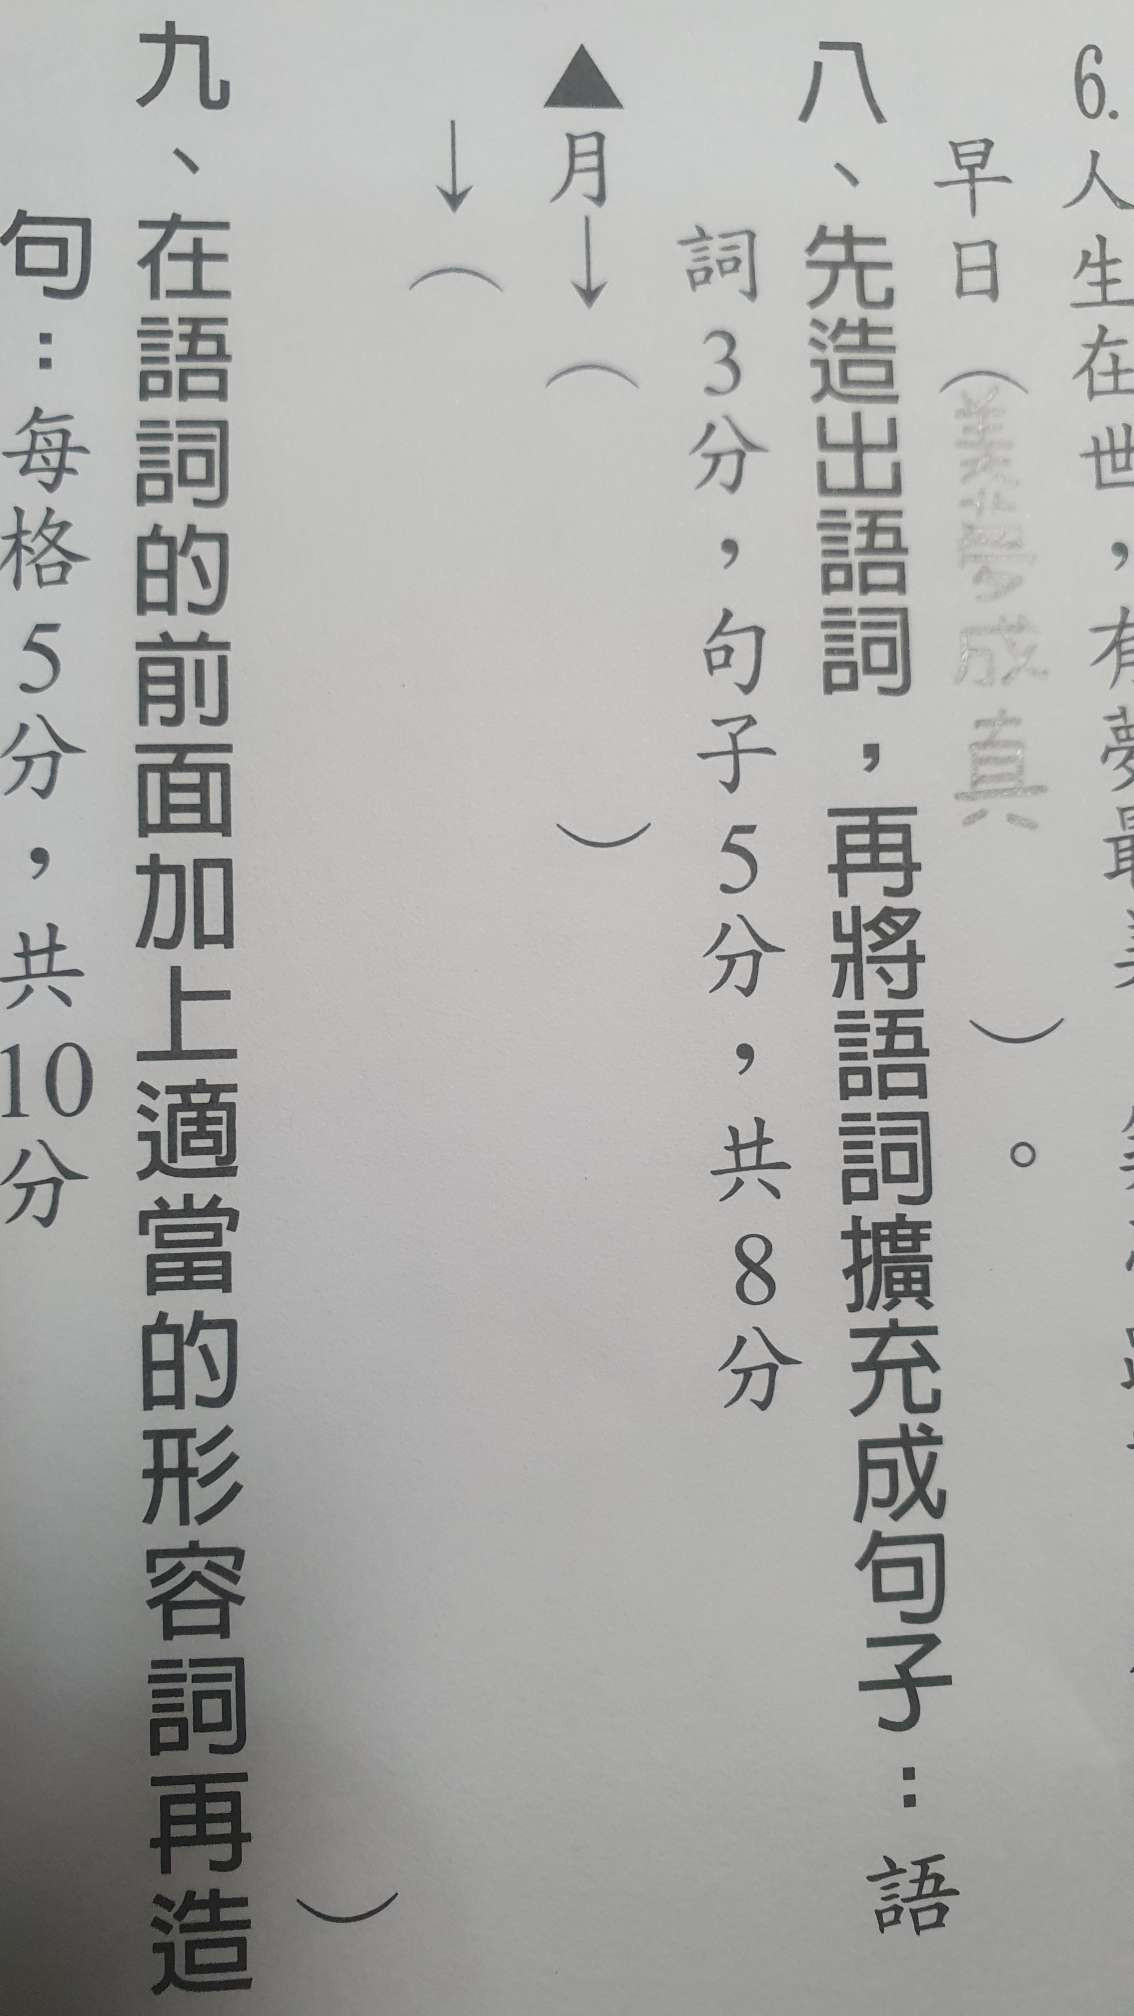 6.人生在世，有夢最美
早日（美夢成真）。
八、先造出語詞，再將語詞擴充成句子：語
詞3分，句子5分，共8分
▲月→（　　　）
→（　　　）
九、在語詞的前面加上適當的形容詞再造
句：每格5分，共10分